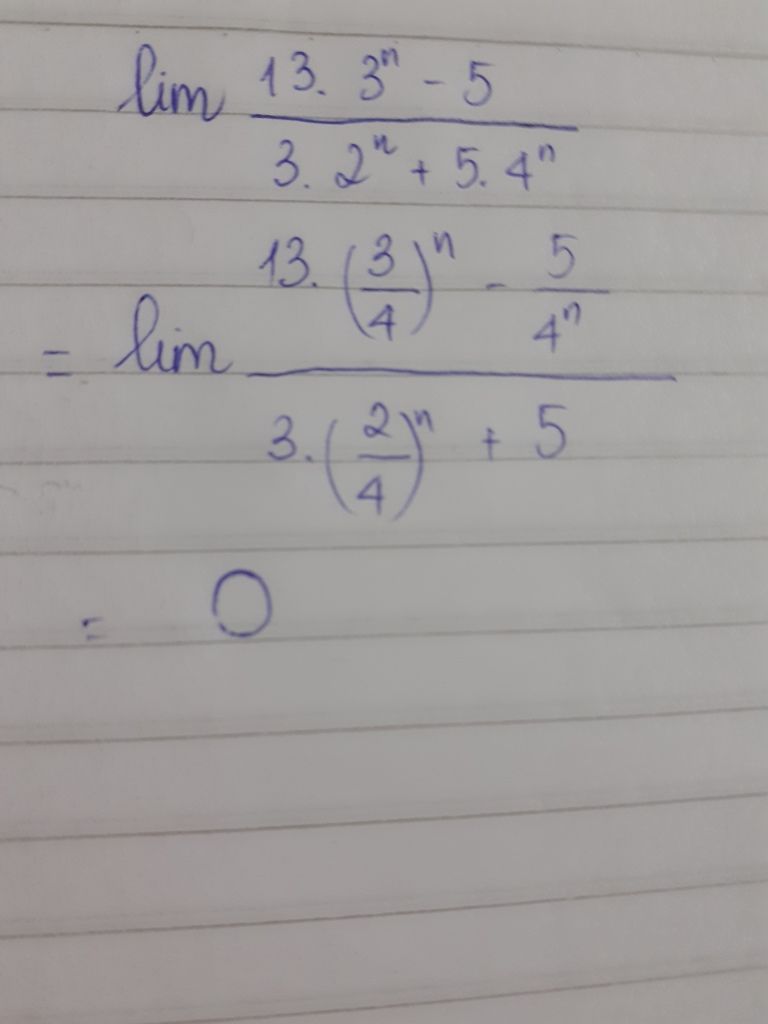 lim (13. 3ⁿ - 5) / (3. 2ⁿ + 5. 4ⁿ)
= lim (13. (3/4)ⁿ - 5/4ⁿ) / (3. (2/4)ⁿ + 5)
= 0